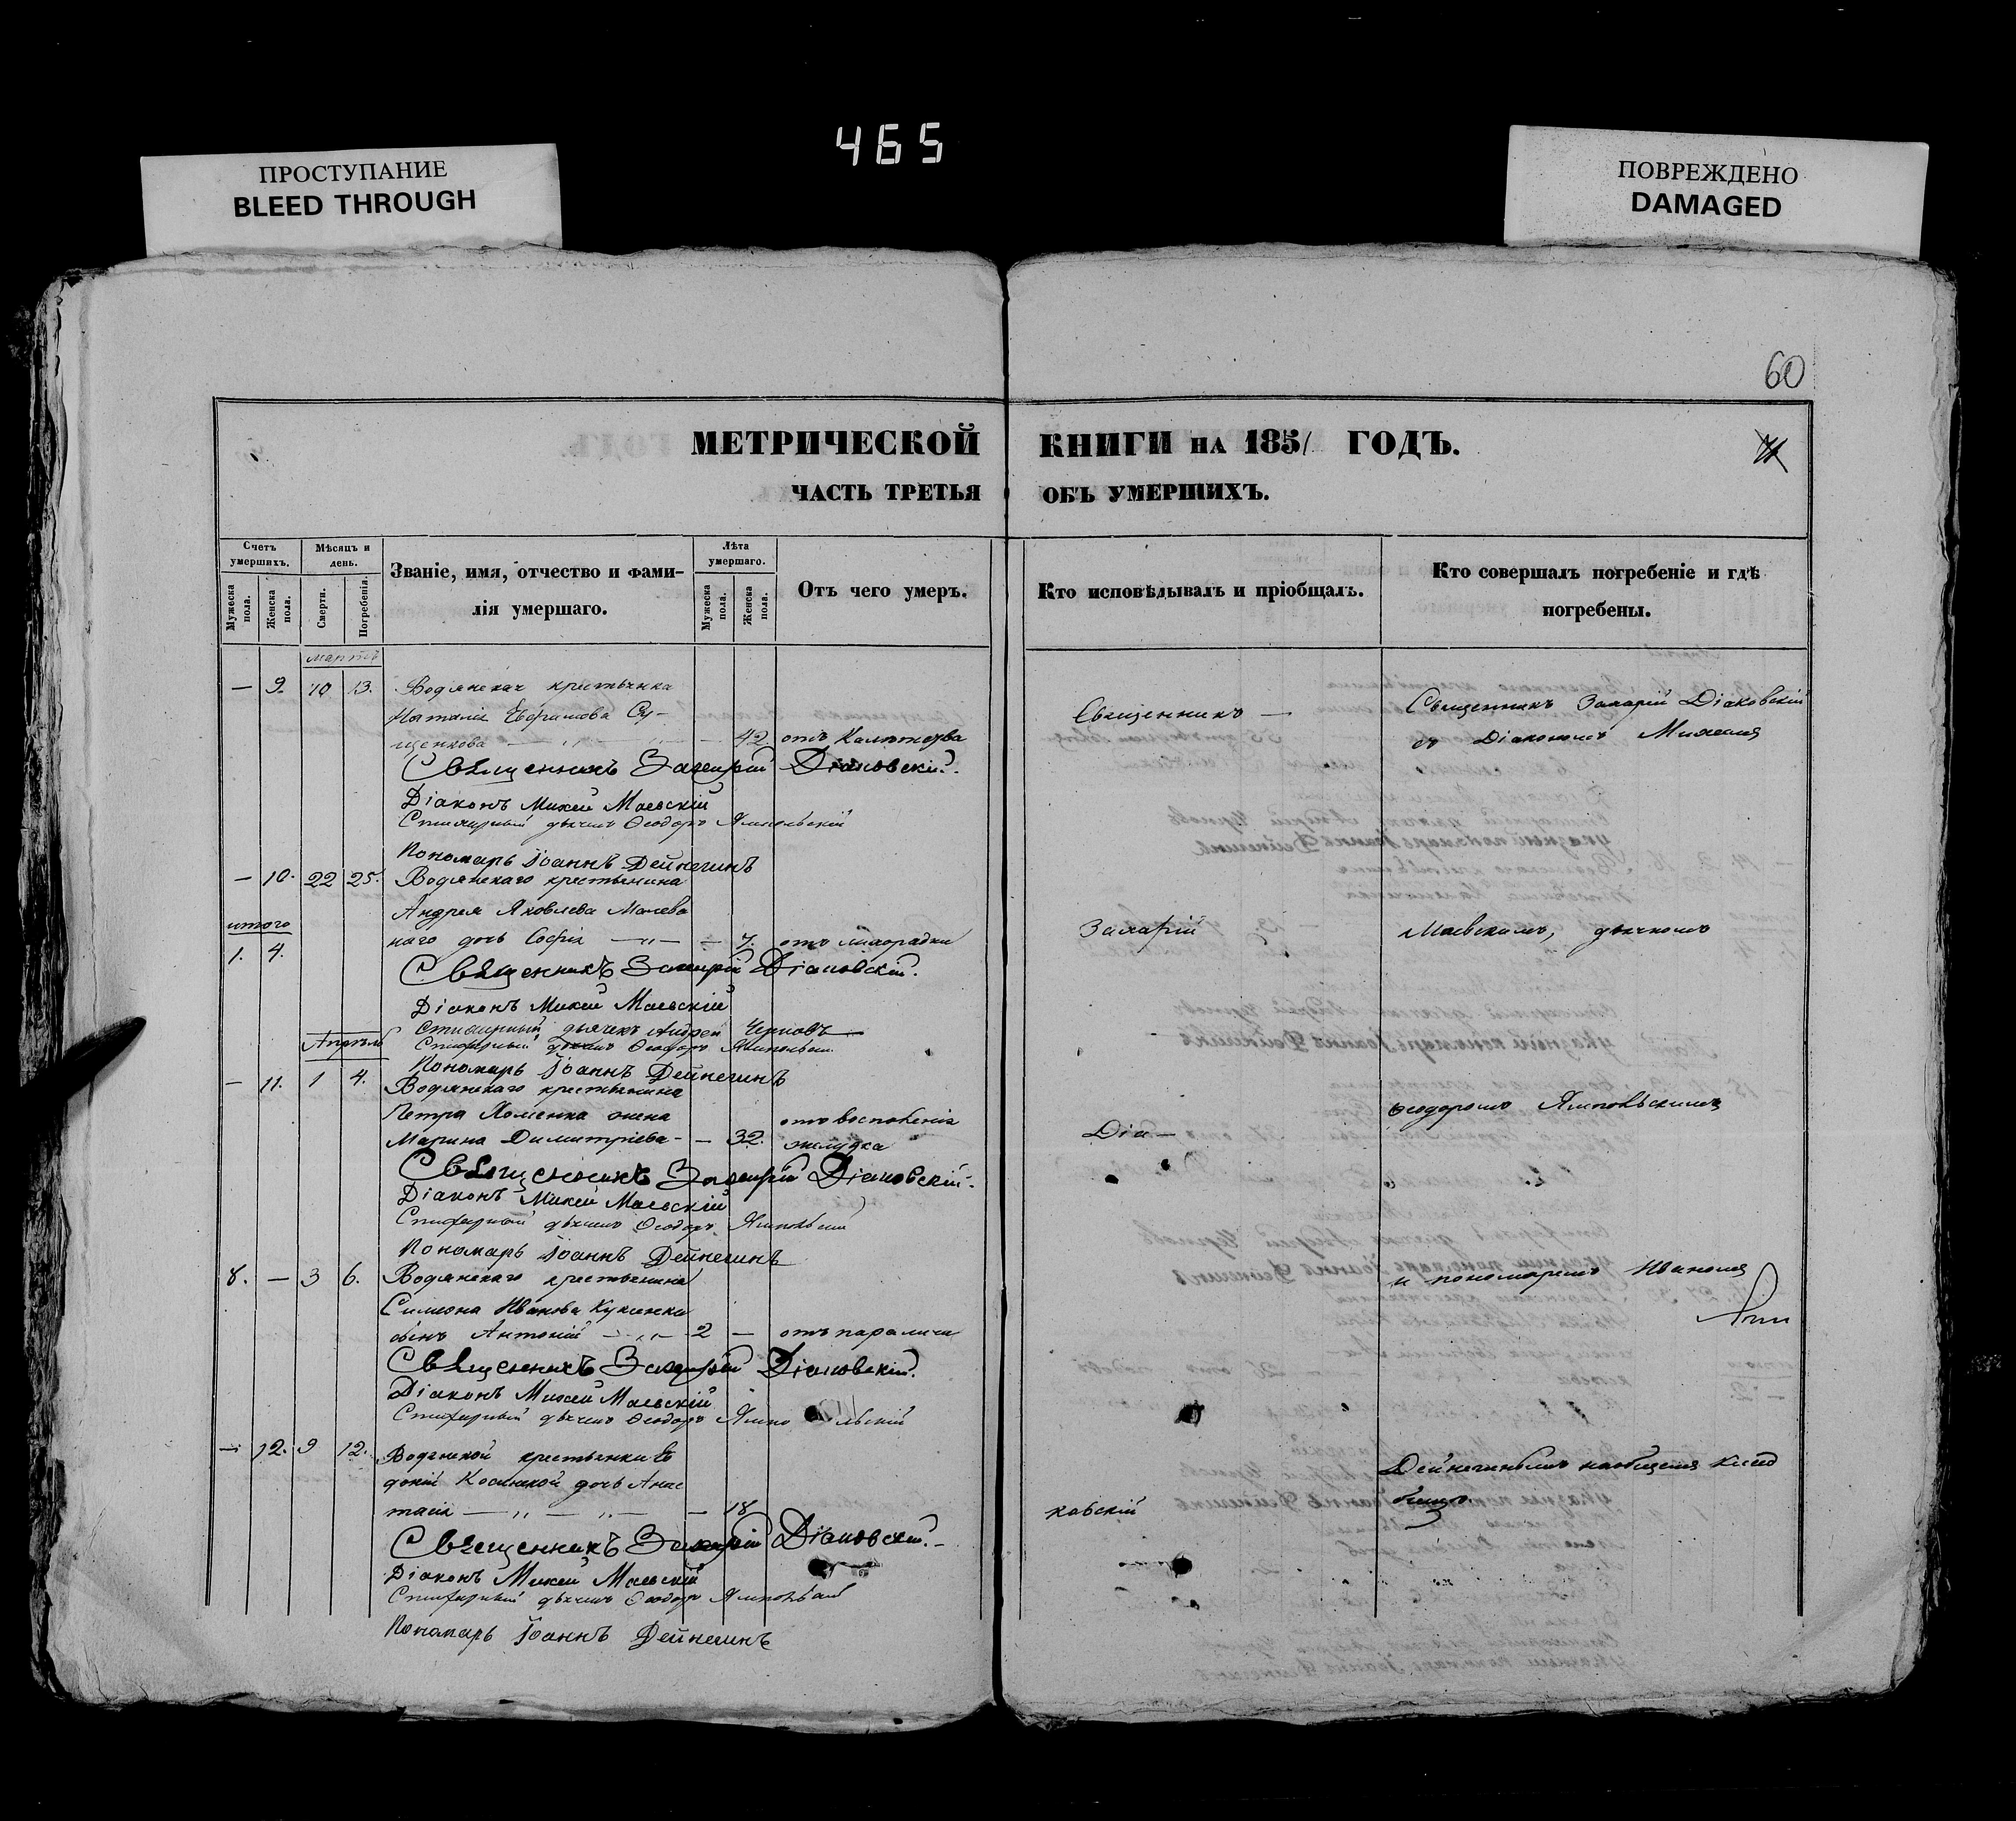 465
ПРОСТУПАНИЕ
BLEED THROUGH
ПОВРЕЖДЕНО
DAMAGED
60
МЕТРИЧЕСКОЙ КНИГИ НА 1851 ГОДЪ.
ЧАСТЬ ТРЕТЬЯ ОБЪ УМЕРШИХЪ.
Счетъ умершихъ.
Мужеска пола.
Женска пола.
Мѣсяцъ и день.
Смерти.
Погребенія.
Званіе, имя, отчество и фами-
лія умершаго.
Лѣта умершаго.
Мужеска пола.
Женска пола.
Отъ чего умеръ.
Кто исповѣдывалъ и пріобщалъ.
Кто совершалъ погребеніе и гдѣ
погребены.
мартъ
— 9. 10 13. Водянская крестьянка
Наталія Ефимова
щенкова — 42
Священникъ Захарій Діаковскій.
Діаконъ Михей Маевскій
Стихарный дьячекъ Ѳеодоръ Ямпольскій
Пономарь Іоаннъ Дейнегинъ
— 10. 22 25. Водянскаго крестьянина
Андрея Яковлева
итого
наго дочь Софія — 7. отъ лихорадки
1. 4.
Священникъ Захарій Діаковскій.
Діаконъ Михей Маевскій
Стихарный дьячекъ Андрей Черновъ
Стихарный дьячекъ Ѳеодоръ Ямпольскій
Апрѣль
Пономарь Іоаннъ Дейнегинъ
— 11. 1 4. Водянскаго крестьянина
Петра Хоменка жена
отъ воспаленія
Марина Димитріева — — 32. желудка
Священникъ Захарій Діаковскій.
Діаконъ Михей Маевскій
Стихарный дьячекъ Ѳеодоръ Ямпольскій
Пономарь Іоаннъ Дейнегинъ
8. — 3 6. Водянскаго крестьянина
Симеона Иванова
сынъ Антоній — 2 — отъ паралича
Священникъ Захарій Діаковскій.
Діаконъ Михей Маевскій
Стихарный дьячекъ Ѳеодоръ Ямпольскій
— 12. 9 12. Водянской крестьянки Ев
докіи дочь Анас
тасія — — 18
Священникъ Захарій Діаковскій.
Діаконъ Михей Маевскій
Стихарный дьячекъ Ѳеодоръ Ямпольскій
Пономарь Іоаннъ Дейнегинъ
Священникъ —
Захарій
Діа —
ковскій
Священникъ Захарій Діаковскій
съ Діакономъ Михеемъ
Маевскимъ, дьячкомъ
Ѳеодоромъ Ямпольскимъ
и пономаремъ Иваномъ
Дейнегинымъ на общемъ клад
бищѣ.